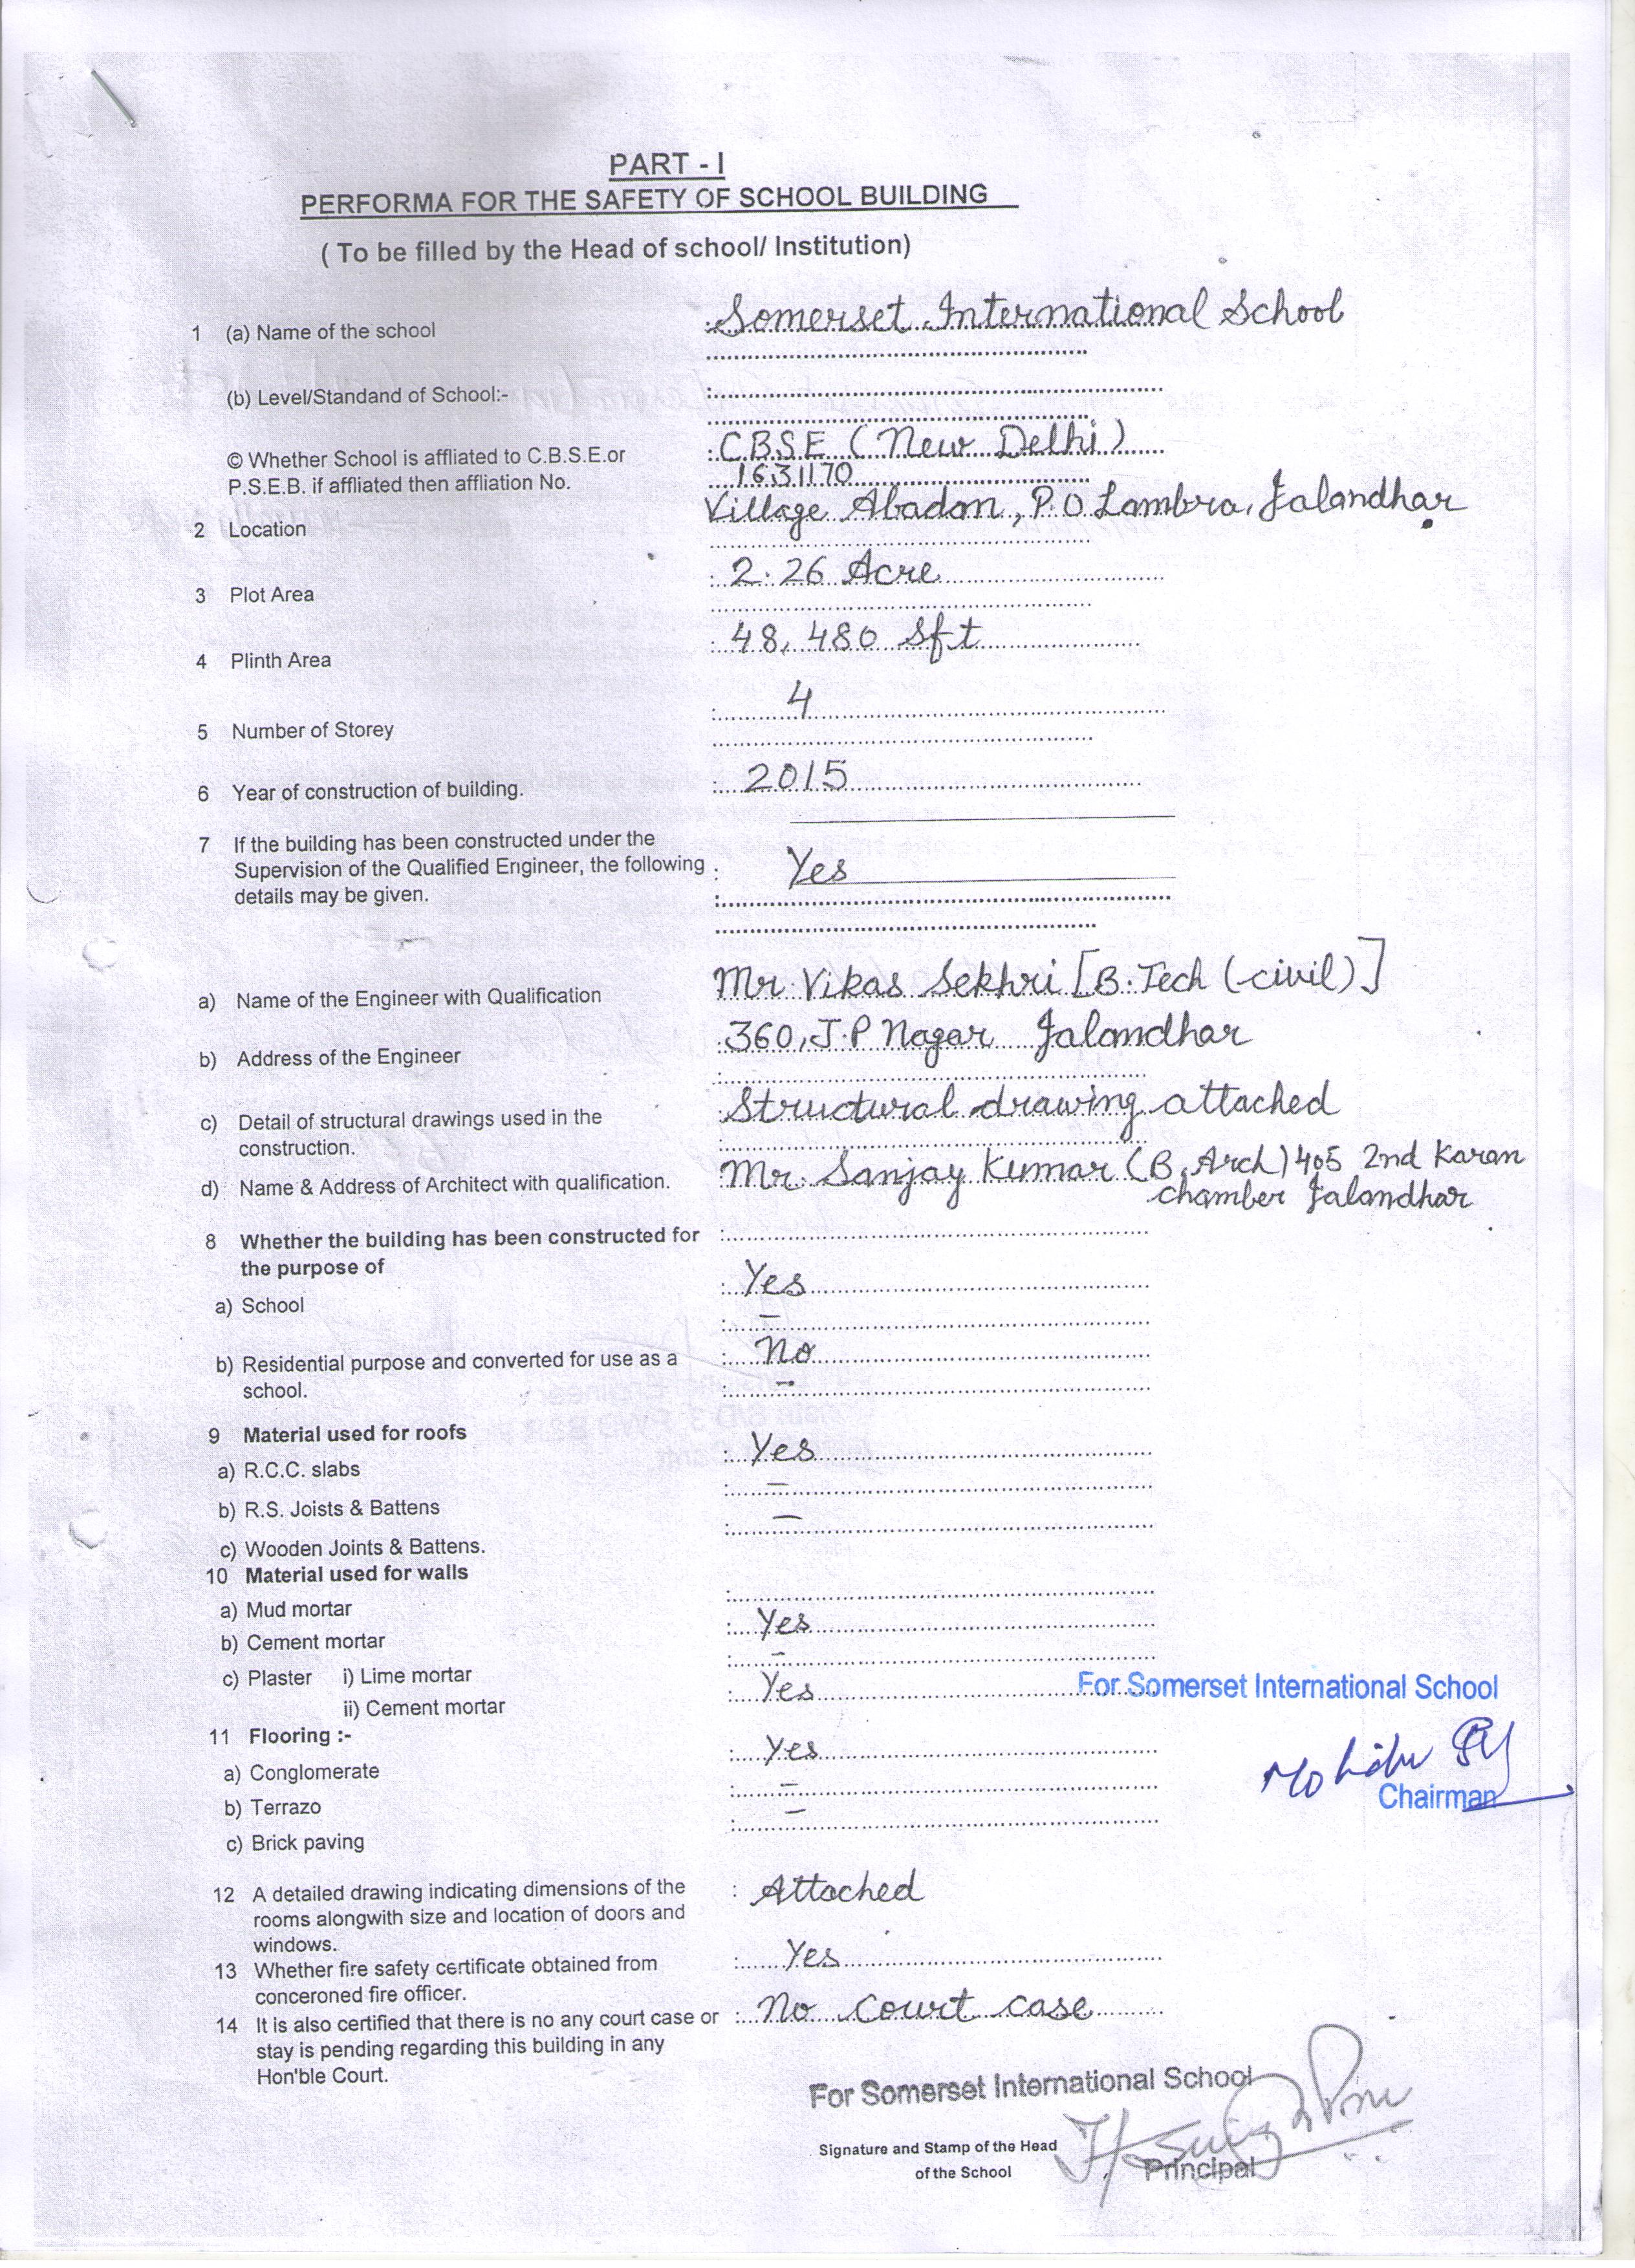 PART - I
PERFORMA FOR THE SAFETY OF SCHOOL BUILDING
( To be filled by the Head of school/ Institution)
1 (a) Name of the school : Somerset International School
(b) Level/Standand of School:- :
© Whether School is affliated to C.B.S.E.or : CBSE (New Delhi)
P.S.E.B. if affliated then affliation No. 1631170
2 Location Village Abadan, P.O Lambra, Jalandhar
3 Plot Area : 2.26 Acre
4 Plinth Area : 48,480 Sft
5 Number of Storey : 4
6 Year of construction of building. : 2015
7 If the building has been constructed under the
Supervision of the Qualified Engineer, the following : Yes
details may be given. :
a) Name of the Engineer with Qualification Mr. Vikas Sekhri [B.Tech (civil)]
b) Address of the Engineer : 360, J.P Nagar Jalandhar
c) Detail of structural drawings used in the : Structural drawing attached
construction.
d) Name & Address of Architect with qualification. Mr. Sanjay Kumar (B.Arch) 405 2nd Karan
chamber Jalandhar
8 Whether the building has been constructed for :
the purpose of
a) School : Yes
: –
b) Residential purpose and converted for use as a : No
school. : –
9 Material used for roofs
a) R.C.C. slabs : Yes
b) R.S. Joists & Battens : –
c) Wooden Joints & Battens. : –
10 Material used for walls
a) Mud mortar :
b) Cement mortar : Yes
c) Plaster i) Lime mortar : –
ii) Cement mortar : Yes
For Somerset International School
11 Flooring :-
a) Conglomerate : Yes
b) Terrazo : –
c) Brick paving : –
Chairman
12 A detailed drawing indicating dimensions of the : Attached
rooms alongwith size and location of doors and
windows.
13 Whether fire safety certificate obtained from : Yes
conceroned fire officer.
14 It is also certified that there is no any court case or : No court case
stay is pending regarding this building in any
Hon'ble Court.
For Somerset International School
Signature and Stamp of the Head
of the School
Principal